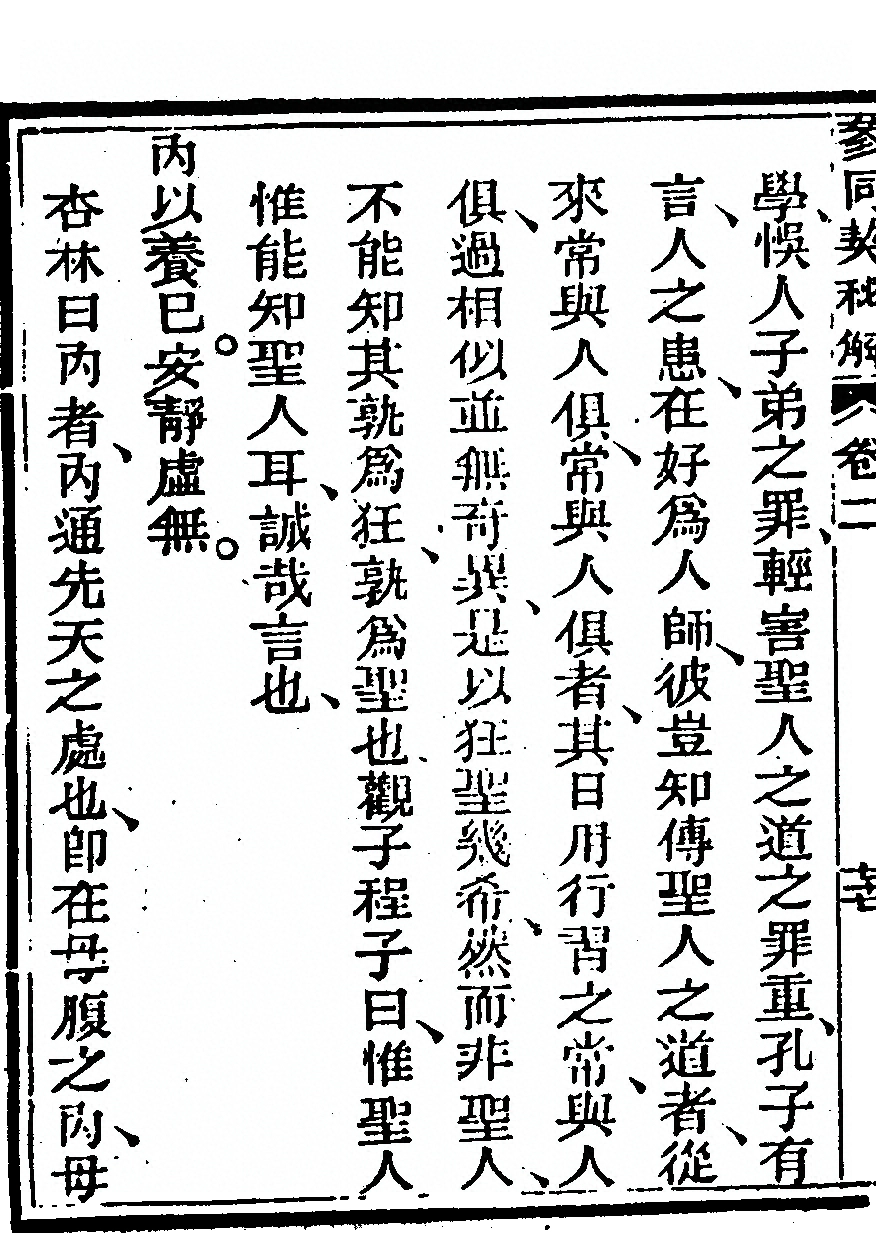 參同契秘解 卷二
學悞人子弟之罪輕害聖人之道之罪重孔子有
言人之患在好爲人師彼豈知傳聖人之道者從
來常與人俱常與人俱者其日用行習之常與人
俱過相似並無奇異是以狂聖幾希然而非聖人
不能知其孰爲狂孰爲聖也觀子程子曰惟聖人
惟能知聖人耳誠哉言也
內以養巳。安靜虛無。
杏林曰內者內通先天之處也卽在母腹之內母